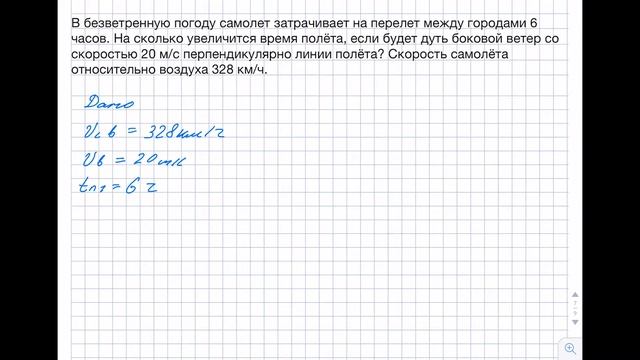 В безветренную погоду самолет затрачивает на перелет между городами 6
часов. На сколько увеличится время полёта, если будет дуть боковой ветер со
скоростью 20 м/с перпендикулярно линии полёта? Скорость самолёта
относительно воздуха 328 км/ч.
Дано
Vс в = 328 км/ч
Vв = 20 м/с
tп1 = 6 ч